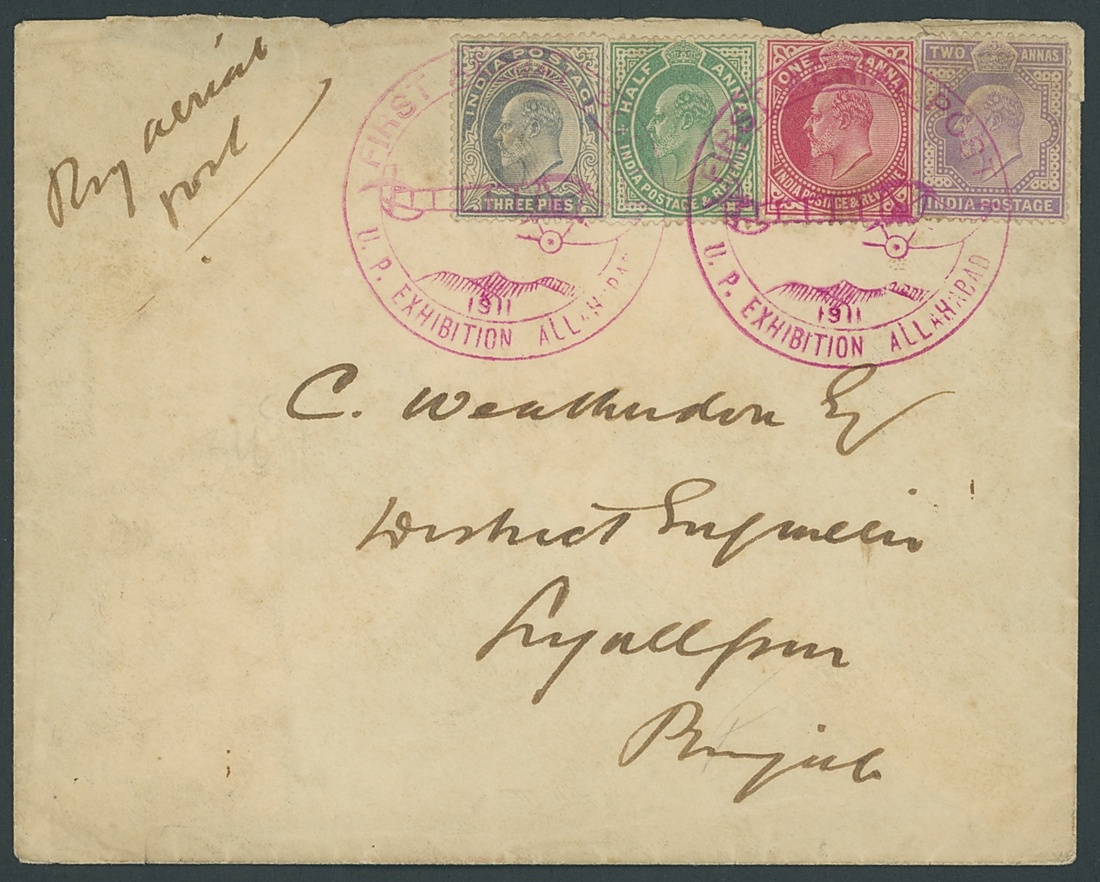 By aerial
post
INDIA POSTAGE
THREE PIES
HALF ANNA
INDIA POSTAGE & REVENUE
ONE ANNA
INDIA POSTAGE & REVENUE
TWO ANNAS
INDIA POSTAGE
FIRST
U. P. EXHIBITION ALLAHABAD
1911
FIRST AERIAL POST
U. P. EXHIBITION ALLAHABAD
1911
C. Weatherdon Esq
District Engineer
Lyallpur
Punjab